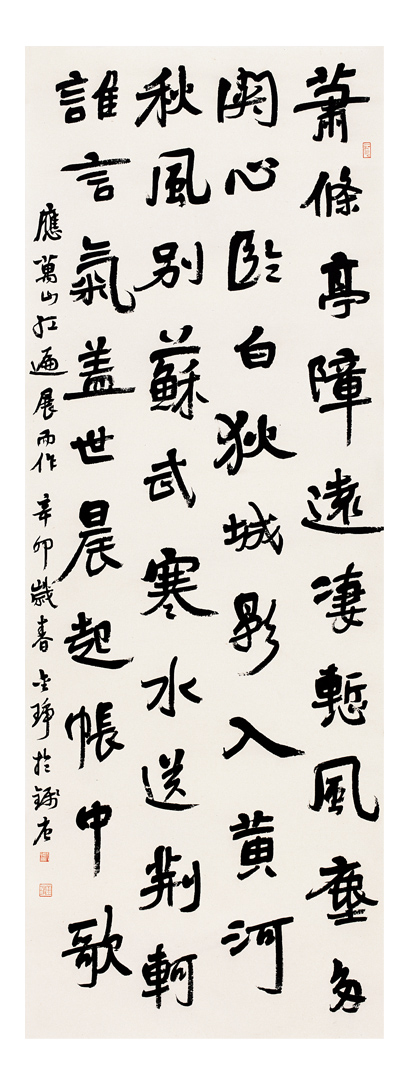 蕭條亭障遠淒慙風塵多
関心臨白狄城影入黄河
秋風别蘇武寒水送荆軻
誰言氣盖世晨起帳中歌
應萬山红遍展而作 辛卯歲春 金琤於